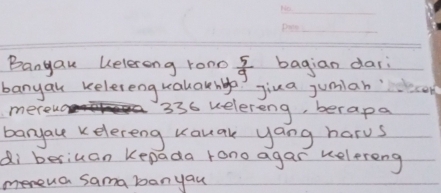 No.
Date
Banyak kelereng rono 5/9 bagian dari
banyak kelereng kakaknya jika jumlah
mereka 336 kelereng, berapa
banyak kelereng kakak yang harus
di berikan kepada rono agar kelereng
mereka sama banyak